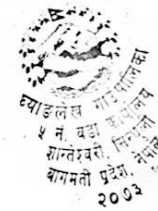 घ्याङलेख गाउँपालिका
५ नं. वडा कार्यालय
शान्तेश्वरी, सिन्धुली
बागमती प्रदेश, नेपाल
२०७३